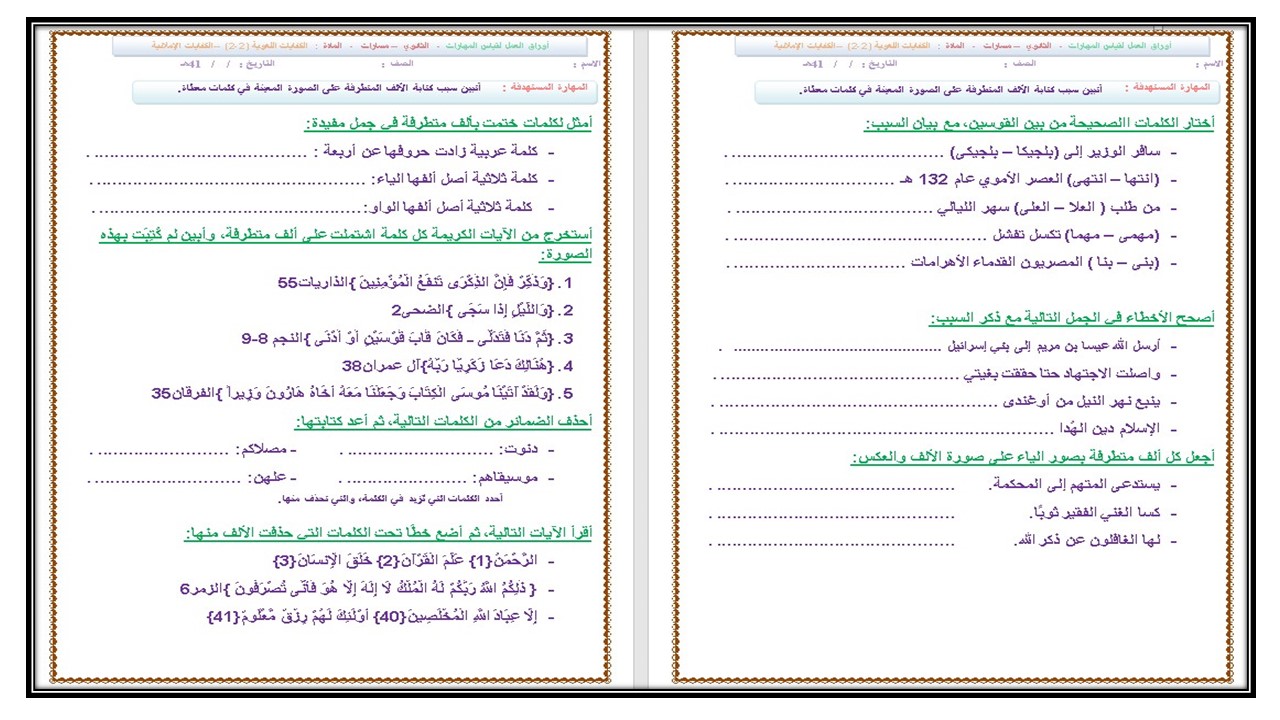 أوراق العمل لقياس المهارات - الثانوي – مسارات - المادة : الكفايات اللغوية (2-2) –الكفايات الإملائية
الاسم : الصف : التاريخ : / / 41هـ
المهارة المستهدفة : أتبين سبب كتابة الألف المتطرفة على الصورة المعينة في كلمات معطاة.
أختار الكلمات االصحيحة من بين القوسين، مع بيان السبب:
- سافر الوزير إلى (بلجيكا – بلجيكى) ..................................... .
- (انتها – انتهى) العصر الأموي عام 132 هـ ............................. .
- من طلب ( العلا – العلى) سهر الليالي ................................... .
- (مهمى – مهما) تكسل تفشل ............................................ .
- (بنى – بنا ) المصريون القدماء الأهرامات .............................. .
أصحح الأخطاء في الجمل التالية مع ذكر السبب:
- أرسل الله عيسا بن مريم إلى بني إسرائيل ............................................ .
- واصلت الاجتهاد حتا حققت بغيتي ......................................... .
- ينبع نهر النيل من أوغندى ................................................ .
- الإسلام دين الهُدا .......................................................... .
أجعل كل ألف متطرفة بصور الياء على صورة الألف والعكس:
- يستدعى المتهم إلى المحكمة. .......................................... .
- كسا الغني الفقير ثوبًا. .......................................... .
- لها الغافلون عن ذكر الله. .......................................... .
أوراق العمل لقياس المهارات - الثانوي – مسارات - المادة : الكفايات اللغوية (2-2) –الكفايات الإملائية
الاسم : الصف : التاريخ : / / 41هـ
المهارة المستهدفة : أتبين سبب كتابة الألف المتطرفة على الصورة المعينة في كلمات معطاة.
أمثل لكلمات ختمت بألف متطرفة في جمل مفيدة:
- كلمة عربية زادت حروفها عن أربعة : ..................................... .
- كلمة ثلاثية أصل ألفها الياء: .............................................. .
- كلمة ثلاثية أصل ألفها الواو:.............................................. .
أستخرج من الآيات الكريمة كل كلمة اشتملت على ألف متطرفة، وأبين لم كُتِبَت بهذه
الصورة:
1. {وَذَكِّرْ فَإِنَّ الذِّكْرَى تَنفَعُ الْمُؤْمِنِينَ }الذاريات55
2. {وَاللَّيْلِ إِذَا سَجَى }الضحى2
3. {ثُمَّ دَنَا فَتَدَلَّى ـ فَكَانَ قَابَ قَوْسَيْنِ أَوْ أَدْنَى }النجم 8-9
4. {هُنَالِكَ دَعَا زَكَرِيَّا رَبَّهُ}آل عمران38
5. {وَلَقَدْ آتَيْنَا مُوسَى الْكِتَابَ وَجَعَلْنَا مَعَهُ أَخَاهُ هَارُونَ وَزِيراً }الفرقان35
أحذف الضمائر من الكلمات التالية، ثم أعد كتابتها:
- دنوت: ............................ . - مصلاكم: ....................... .
- موسيقاهم: ....................... . - علهن: ........................... .
أحدد الكلمات التي تزيد في الكلمة، والتي تحذف منها.
أقرأ الآيات التالية، ثم أضع خطًّا تحت الكلمات التي حذفت الألف منها:
- الرَّحْمَنُ{1} عَلَّمَ الْقُرْآنَ{2} خَلَقَ الْإِنسَانَ{3}
- { ذَلِكُمُ اللَّهُ رَبُّكُمْ لَهُ الْمُلْكُ لَا إِلَهَ إِلَّا هُوَ فَأَنَّى تُصْرَفُونَ }الزمر6
- إِلَّا عِبَادَ اللَّهِ الْمُخْلَصِينَ{40} أُوْلَئِكَ لَهُمْ رِزْقٌ مَّعْلُومٌ{41}